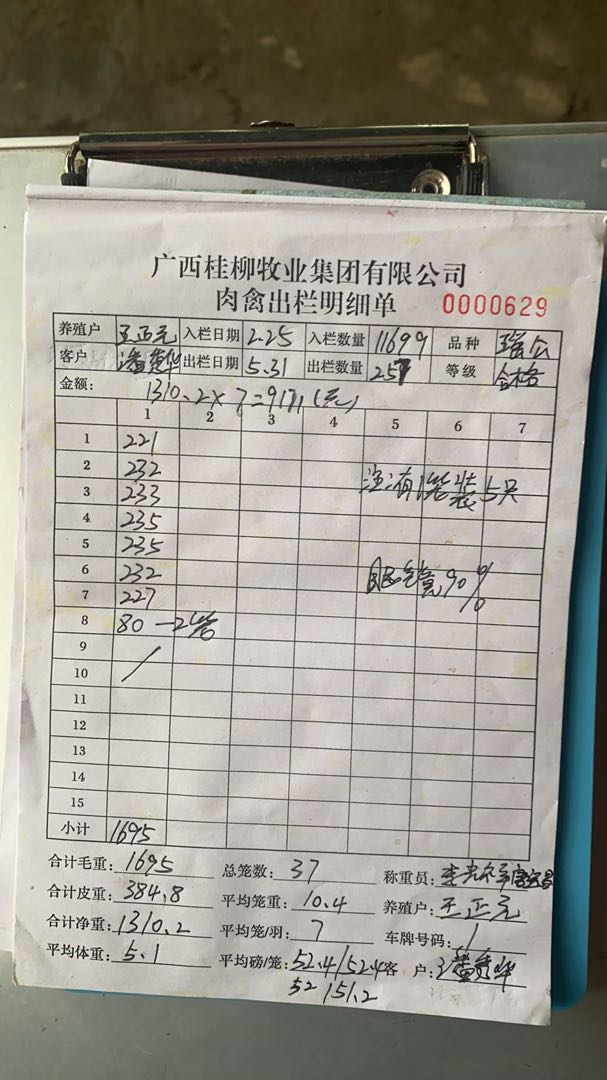 广西桂柳牧业集团有限公司
肉禽出栏明细单 0000629
养殖户 王正元 入栏日期 2.25 入栏数量 11699 品种 瑶公
客户 出栏日期 5.31 出栏数量 257 等级 合格
金额: 1310.2×7=9171(元)
1 2 3 4 5 6 7
1 221
2 232 注:有1笼装5只
3 233
4 235
5 235
6 232 90%
7 227
8 80 — 2笼
9
10 /
11
12
13
14
15
小计 1695
合计毛重: 1695 总笼数: 37 称重员:
合计皮重: 384.8 平均笼重: 10.4 养殖户: 王正元
合计净重: 1310.2 平均笼/羽: 7 车牌号码: /
平均体重: 5.1 平均磅/笼: 52.4/52.4 客 户:
52 /51.2